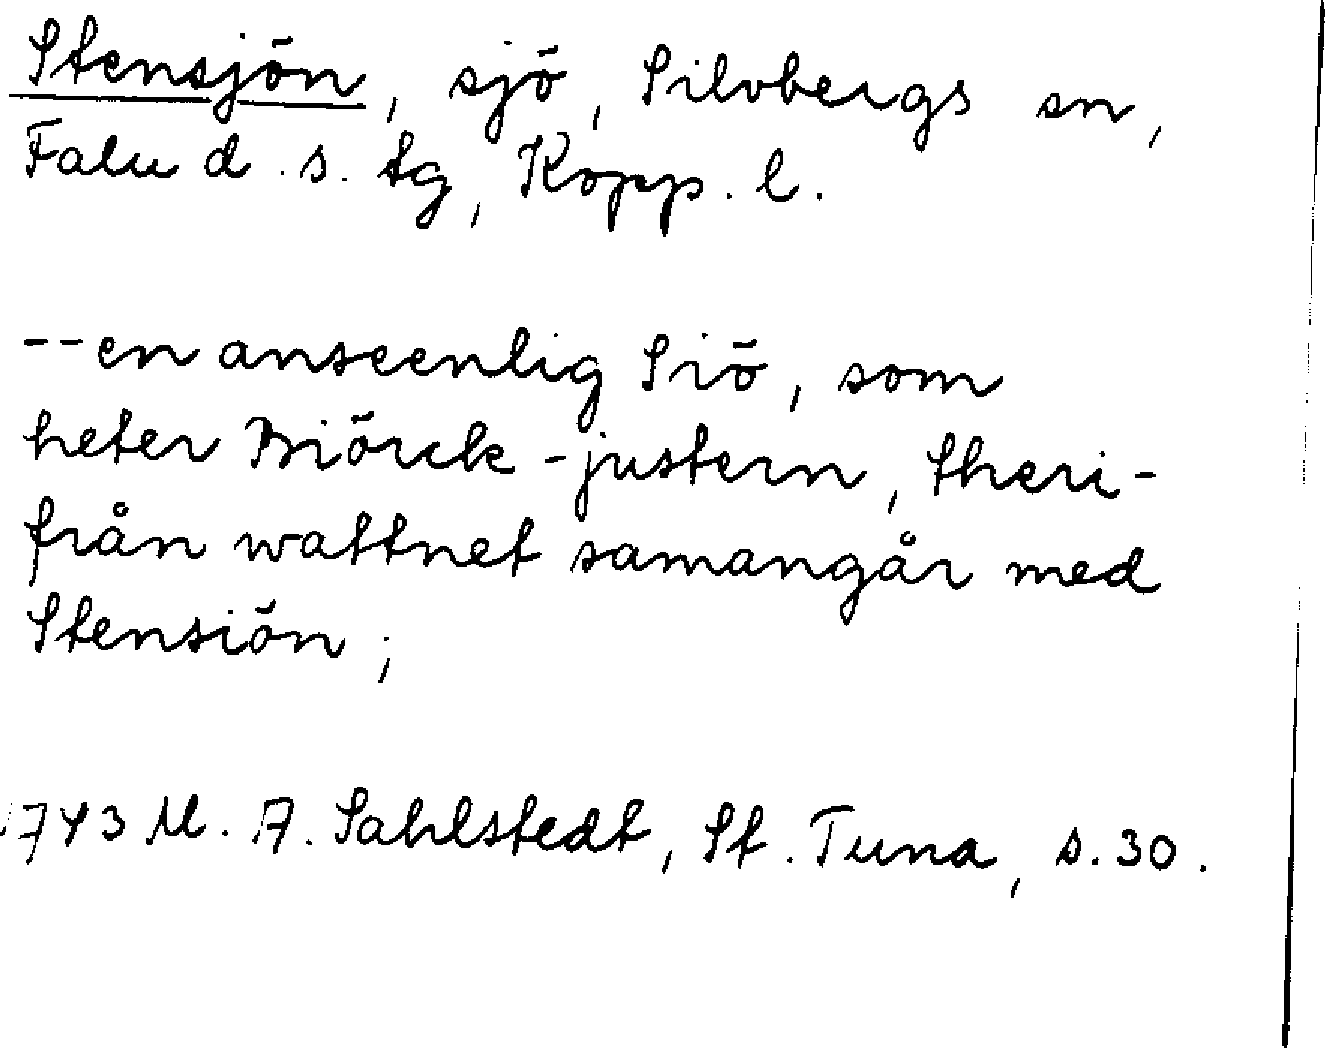 Stensjön, sjö, Silvbergs sn,
Falu d. s. tg, Kopp. l.
-- en anseenlig Siö, som
heter Biörck-justern, theri-
från wattnet samangår med
Stensiön;
1743 M. A. Sahlstedt, St. Tuna, s. 30.